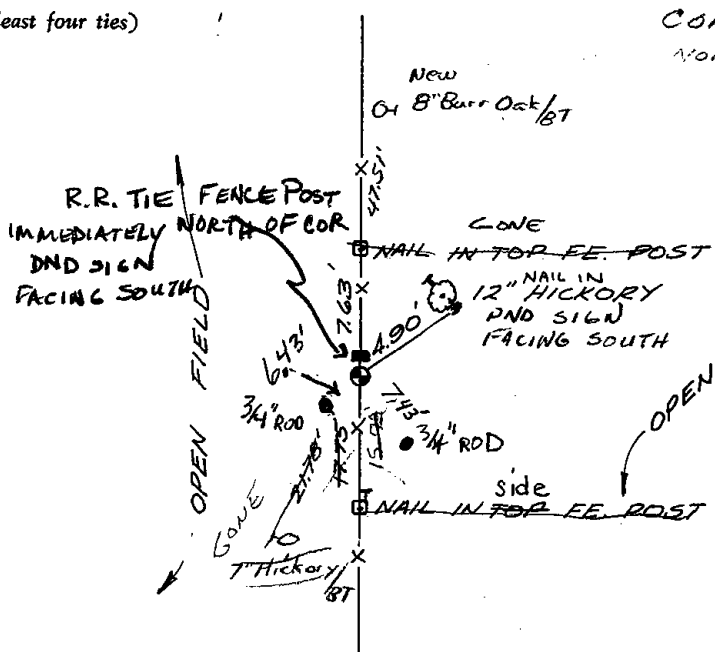 east four ties)
New
8" Burr Oak/BT
47.51'
R.R. TIE FENCE POST
IMMEDIATELY NORTH OF COR
DND SIGN
FACING SOUTH
GONE
NAIL IN TOP FE. POST
7.63'
NAIL IN
12" HICKORY
DND SIGN
FACING SOUTH
4.90'
6.43'
3/4" ROD
7.43'
3/4" ROD
OPEN FIELD
OPEN
21.78'
17.73
side
NAIL IN TOP FE. POST
GONE
7" Hickory/BT